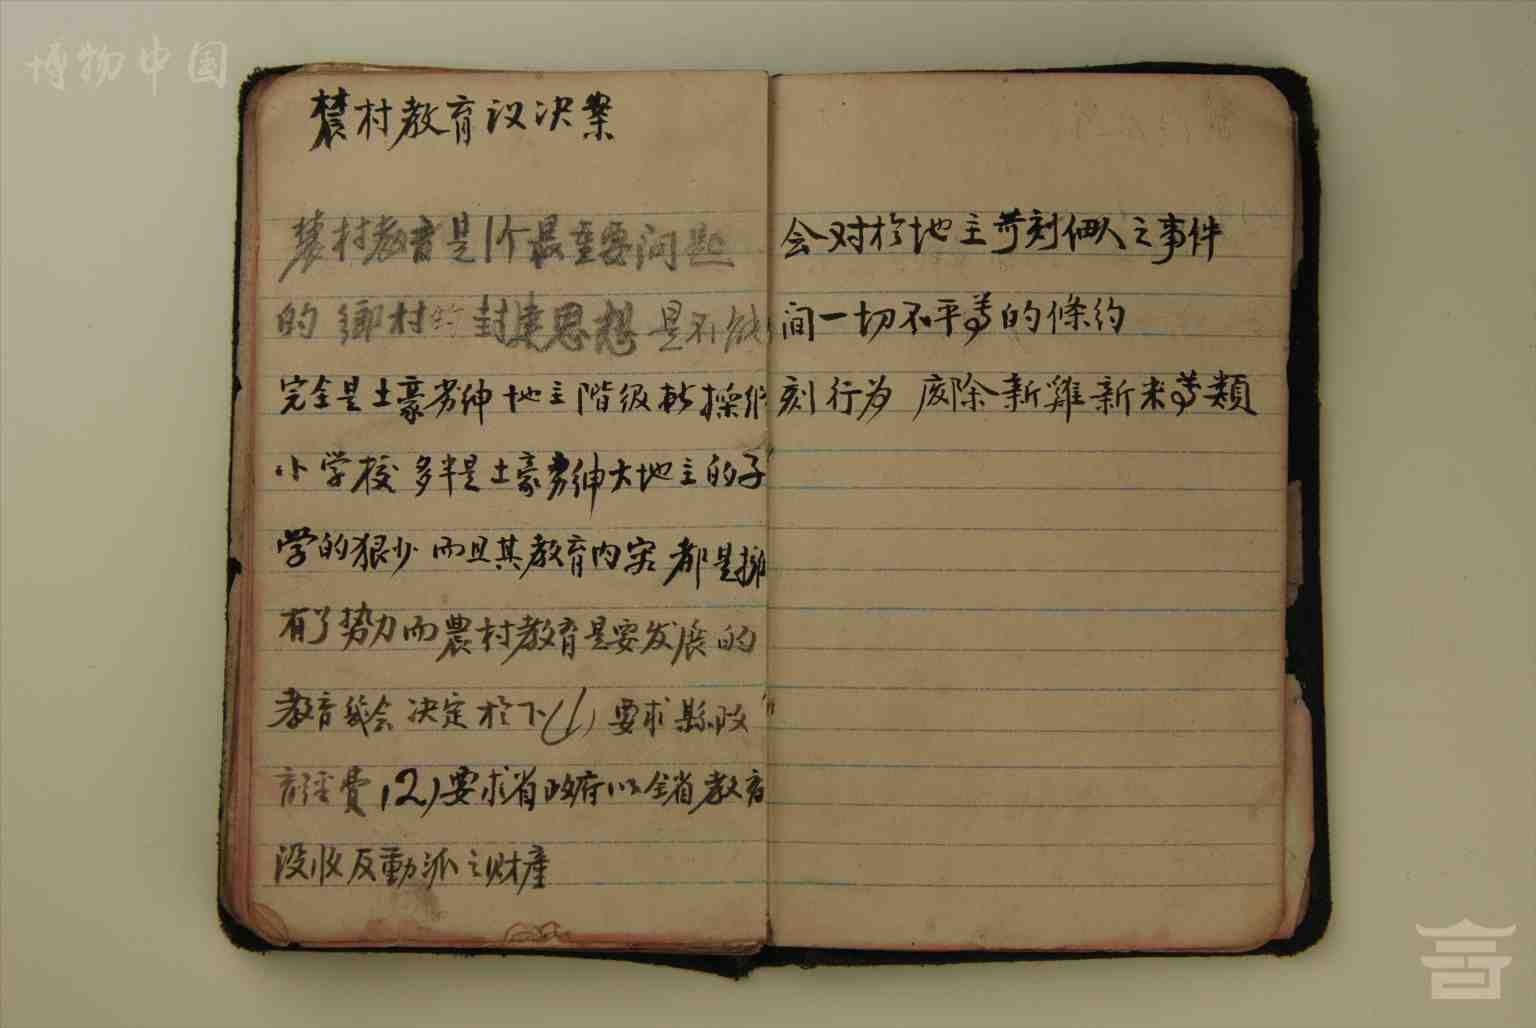 博物中国
農村教育议决案
農村教育是1个最重要问题
的 鄉村的封建思想 是不能
完全是土豪劣绅地主階级 操纵
小学校 多半是土豪劣绅大地主的子
学的狠少 而且其教育内容 都是擁
有了势力而農村教育是要发展的
教育 会决定於下(1)要求縣政
育经費(2)要求省政府以全省教育
没收反動派之财產
会对於地主苛刻佃人之事件
间一切不平等的條约
刻行为 废除新雞新米等類